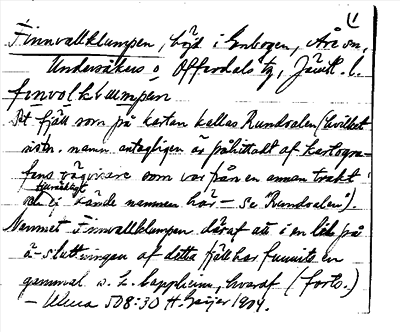 1
Finnvallklumpen, höjd i Enbogen, Åre sn,
Undersåkers o Offerdals tg, Jämtl. l.
finvolkl
Det fjäll som på kartan kallas Rundvalen (hvilket
nstn. namn antagligen är påhittadt af kartogra-
fens vägvisare som var från en annan trakt
och ej kände namnen här – se Rundvalen).
Namnet Finnvallklumpen däraf att i en lid på
ö-sluttningen af detta fjäll har funnits en
gammal s. k. lappläum, hvaraf (forts.)
– Ulma 508:30 H. Geijer 1909.